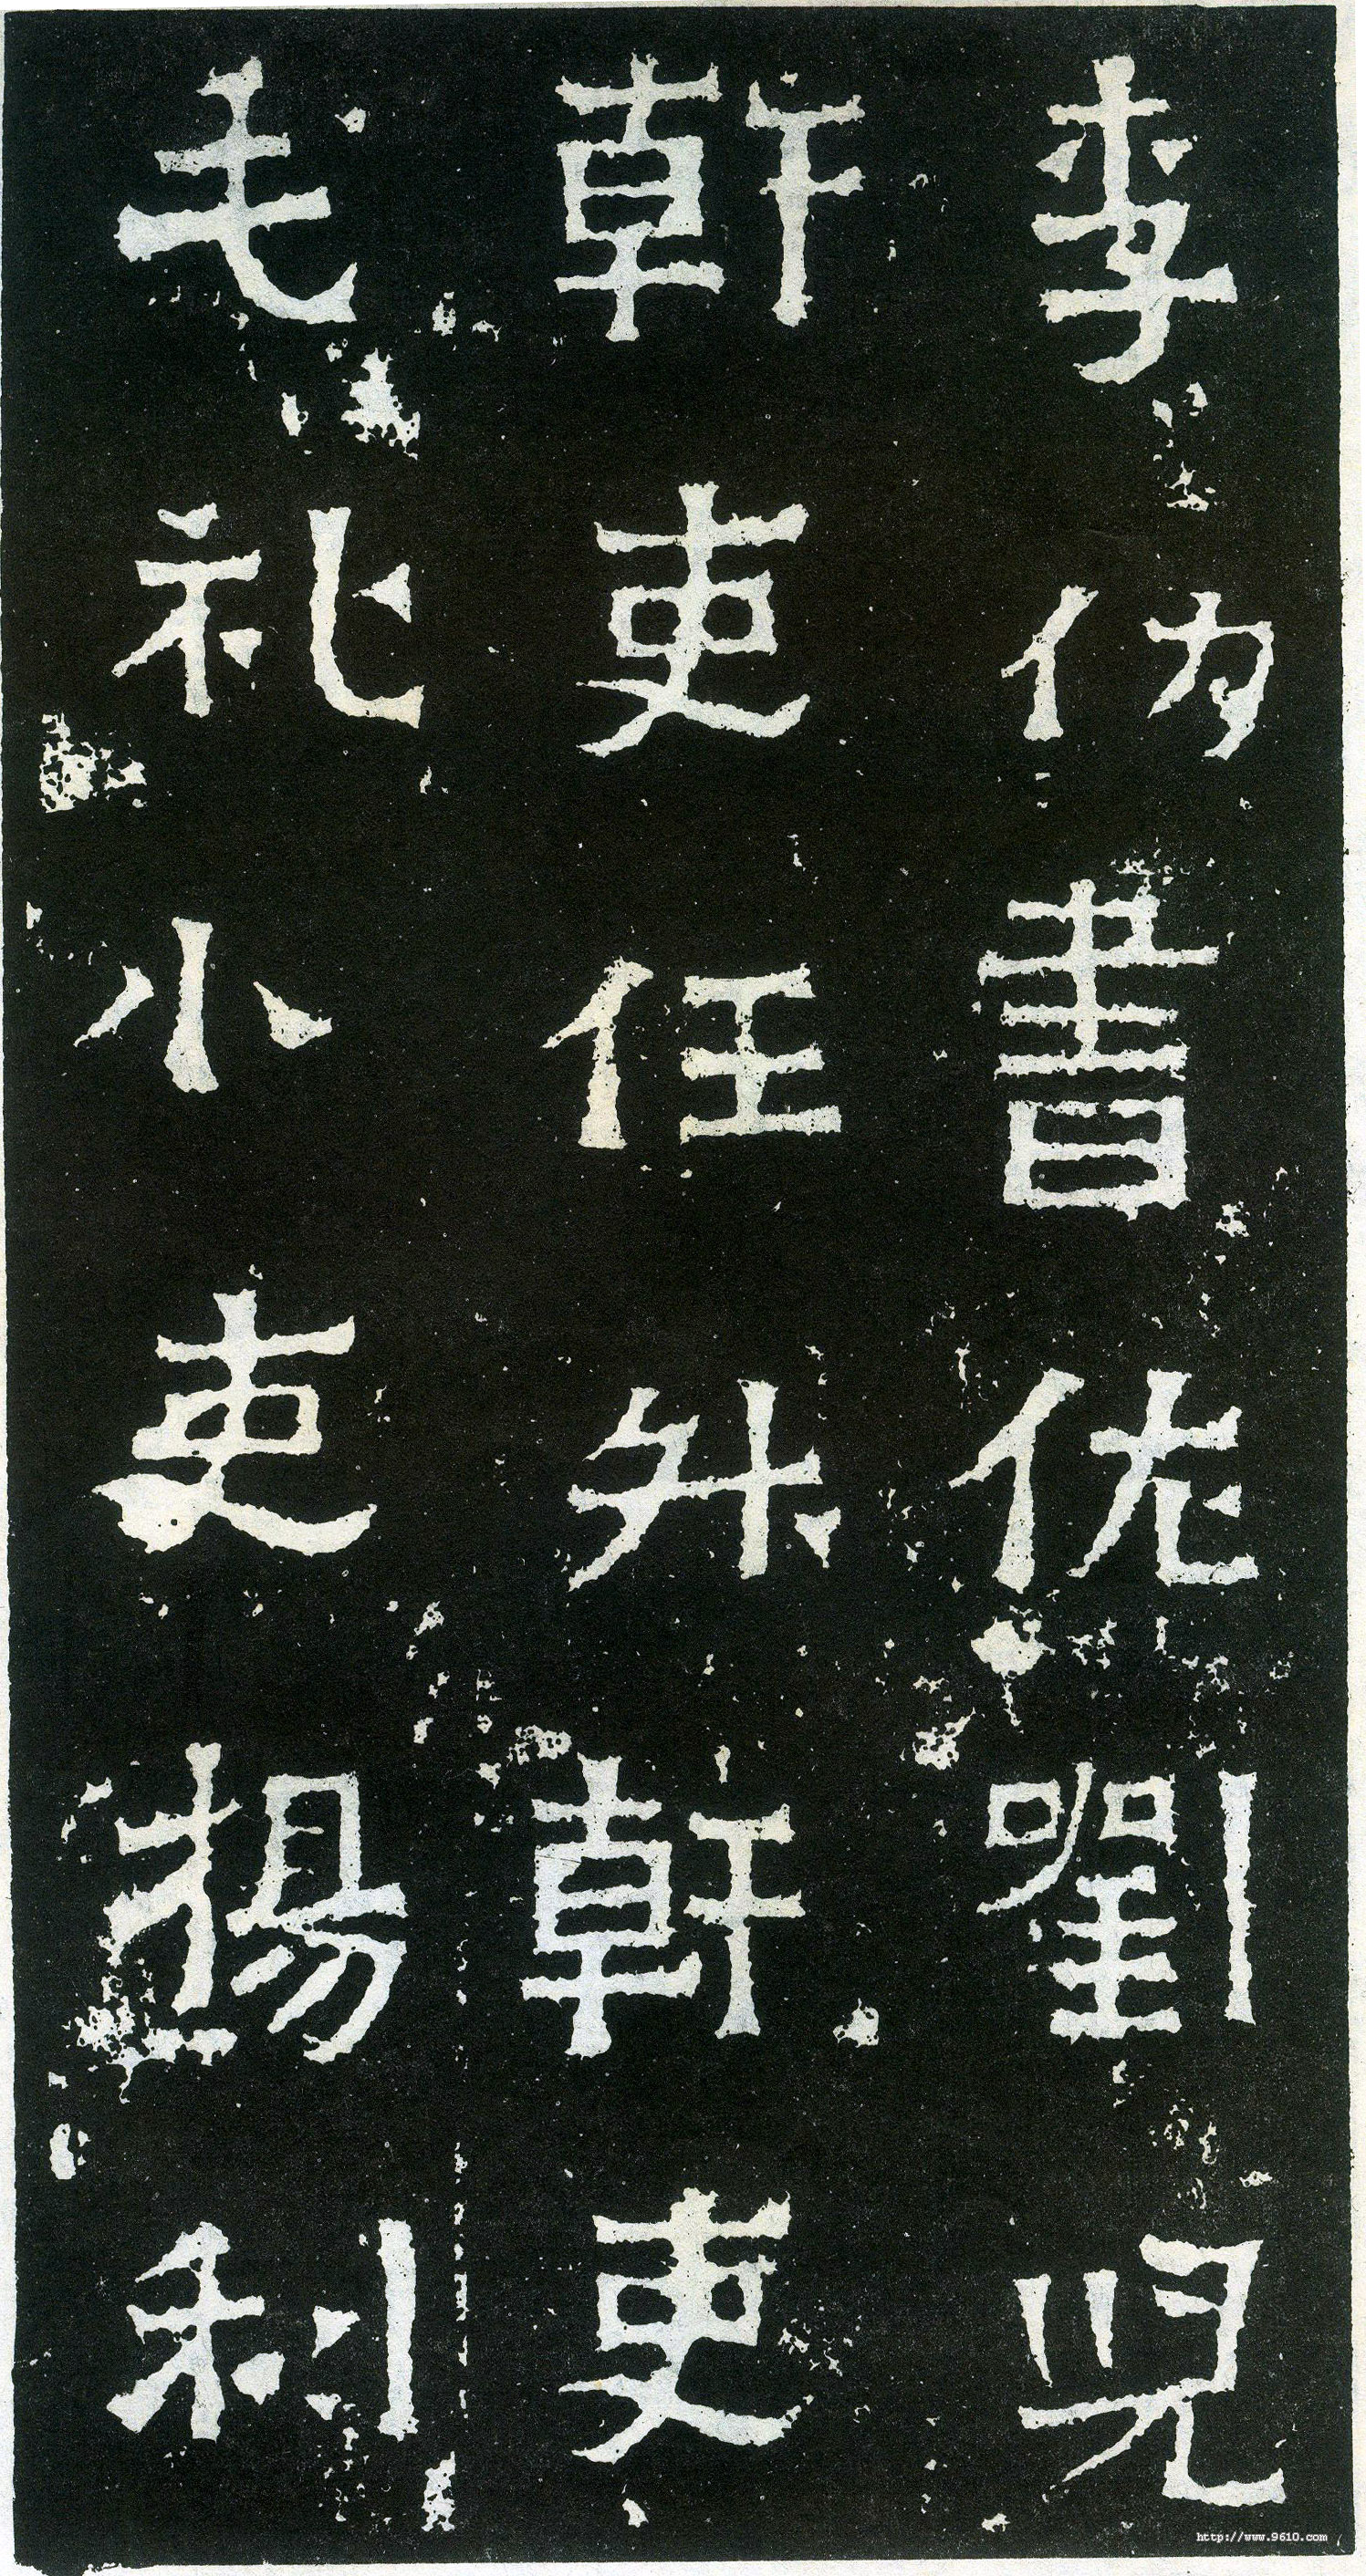 李仂書佐劉兒
幹吏任升幹吏
毛礼小吏揚利
http://www.9610.com